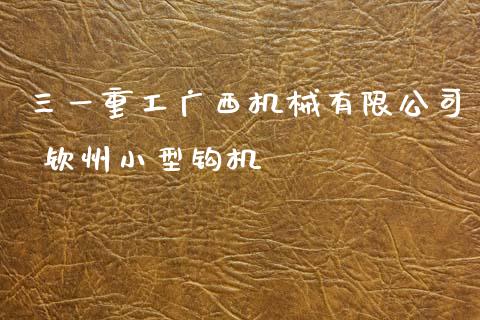 三一重工广西机械有限公司
钦州小型钩机